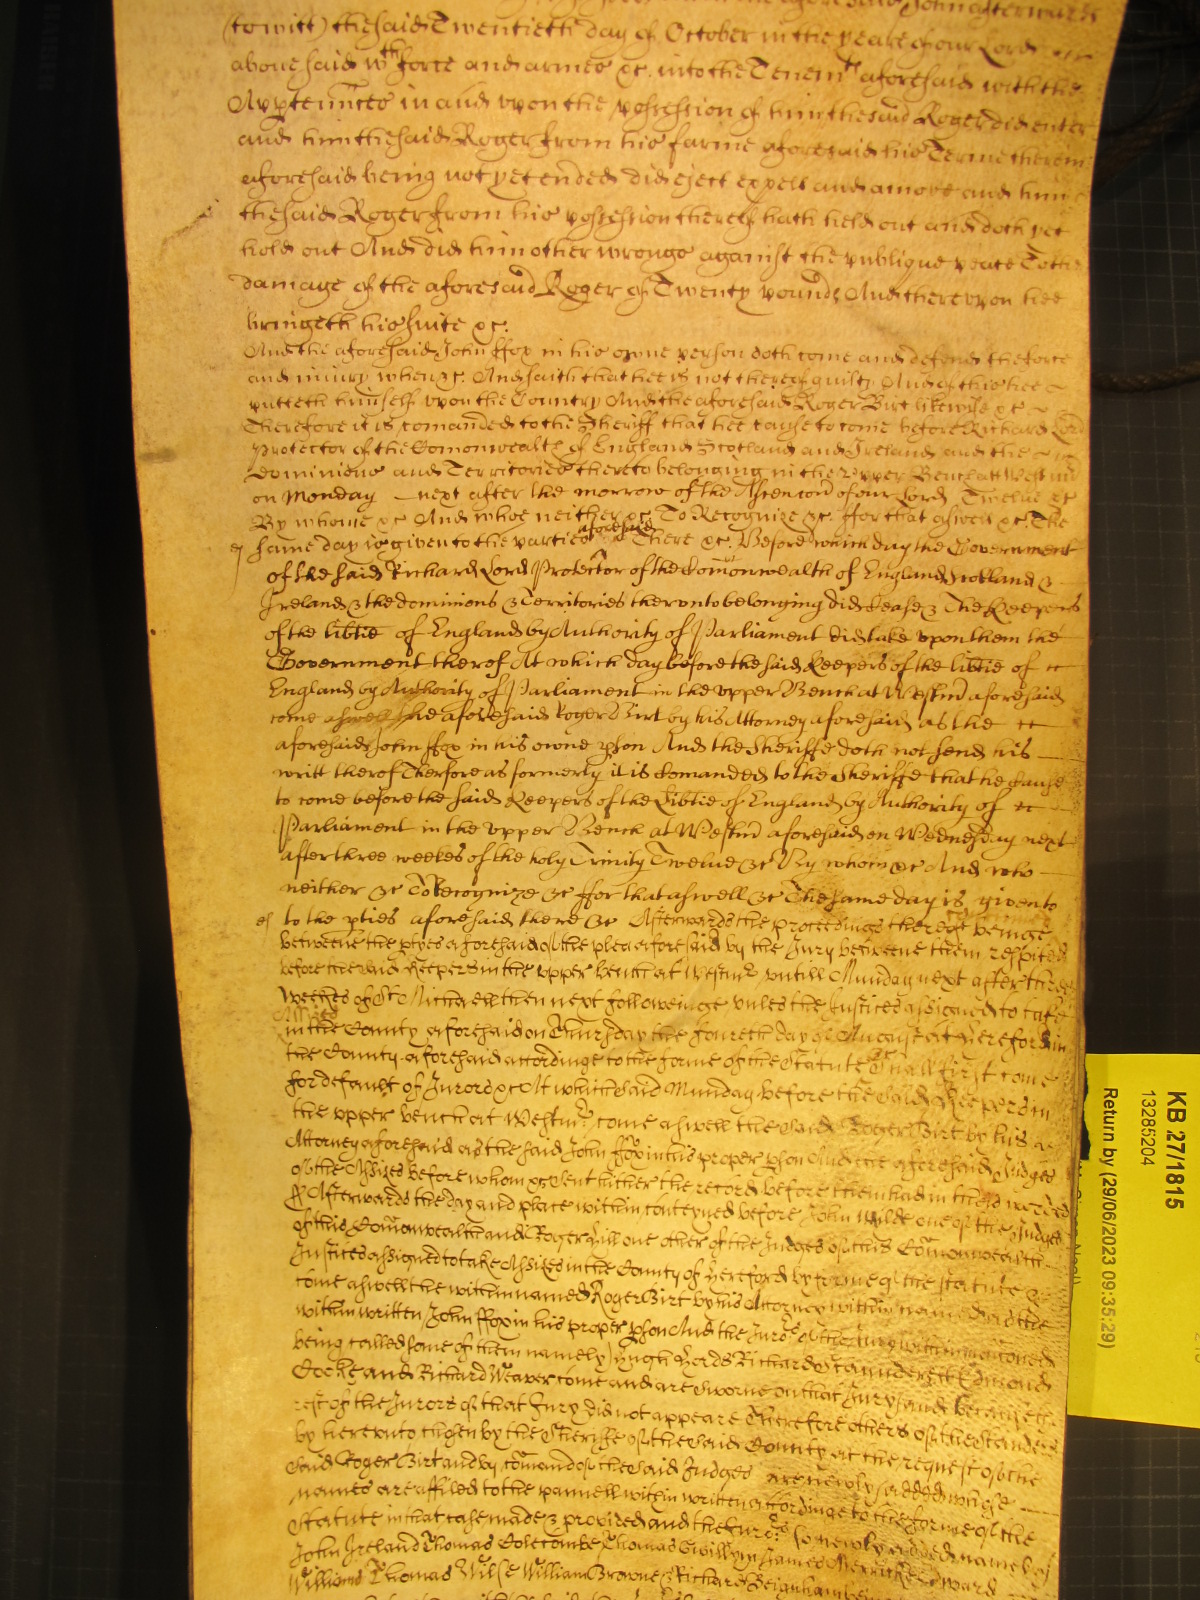 John afterwards
(to witt) the said Twentieth day of October in the yeare of our Lord
abouesaid wth force and armes &c. into the Tenemts aforesaid with the
Apptennces in and vpon the possession of him the said Roger did enter
and him the said Roger from his farme aforesaid his Terme therein
aforesaid being not yet ended did eject expell and amove and him
the said Roger from his possession thereof hath held out and doth yet
hold out And did him other wrongs against the publique peace To the
damage of the aforesaid Roger of Twenty pounds And therevpon hee
bringeth his suite &c.
And the aforesaid John ffox in his owne person doth come and defend the force
and iniury when &c. And saith that hee is not thereof guilty And of this hee
putteth himself vpon the Country And the aforesaid Roger Birt likewise &c
Therefore it is comanded to the Sheriff that hee cause to come before Richard Lord
Protector of the Comonwealth of England Scotland and Ireland and the
Dominions and Territories thereto belonging in the vpper Bench att Westmr
on Monday next after the morrow of the Ascencon of our Lord Twelue &c
By whome &c And whoe neither &c. To Recognize &c. ffor that aswell &c. The
same day is given to the parties aforesaid There &c. Before which day the Government
of the said Richard Lord Protector of the Comonwealth of England Scotland &
Ireland & the dominions & Territories therunto belonging did cease & The Keepers
of the libtie of England by Authority of Parliament did take vpon them the
Government therof At which day before the said Keepers of the libtie of
England by Authority of Parliament in the vpper Bench at Westmr aforesaid
come aswell the aforesaid Roger Birt by his Attorney aforesaid as the
aforesaid John ffox in his owne pson And the Sheriffe doth not send his
writt therof Therfore as formerly it is Comanded to the Sheriffe that he Cause
to come before the said Keepers of the Libtie of England by Authority of
Parliament in the vpper Bench at Westmr aforesaid on Wednesday next
after three weekes of the holy Trinity Twelue &c By whom &c And who
neither &c To Recognize &c ffor that aswell &c The same day is given to
to the pties aforesaid there &c Afterwards the proceedings thereof beinge
betweene the ptyes aforesaid of the plea aforesaid by the Jury betweene them respited
before the said Keepers in the vpper bench at Westmr vntill Munday next after three
weekes of St Michaell then next followeinge vnles the Justices assigned to take
Assizes
in the County aforesaid on Thursday the fourth day of August at Hereford in
the County aforesaid accordinge to the forme of the Statute &c shall first come
for default of Jurors &c At which said Munday before the said Keepers in
the vpper bench at Westmr come aswell the said Roger Birt by his
Attorney aforesaid as the said John ffox in his proper pson And the aforesaid Judges
of the Assizes before whom &c sent hither the record before them had in these words
Afterwards the day and place within conteyned before John Wilde one of the Judges
of this Comonwealth and Roger Hill one other of the Judges of this Comonwealth
Justices assigned to take Assizes in the County of Hereford by forme of the statute &c
come aswell the within named Roger Birt by his Attorney within named as the
within written John ffox in his proper pson And the Jurors of the Jury within mentioned
being called some of them namely Hugh Richard Edmond
and Richard Weaver come and are sworne on that Jury and because the
rest of the Jurors of that Jury did not appeare Therefore others of the standers
by herevnto chosen by the Sheriffe of the said County at the request of the
said Roger Birt and by comand of the said Judges are newly added whose
names are affiled to the pannell within written accordinge to the forme of the
Statute in that case made & provided and the Jurors so newly added namely
John Ireland Thomas Thomas Gwillym James Merrick Edward
Williams Thomas William Browne & Richard
KB 27/1815
13285204
Return by (29/06/2023 09:35:29)